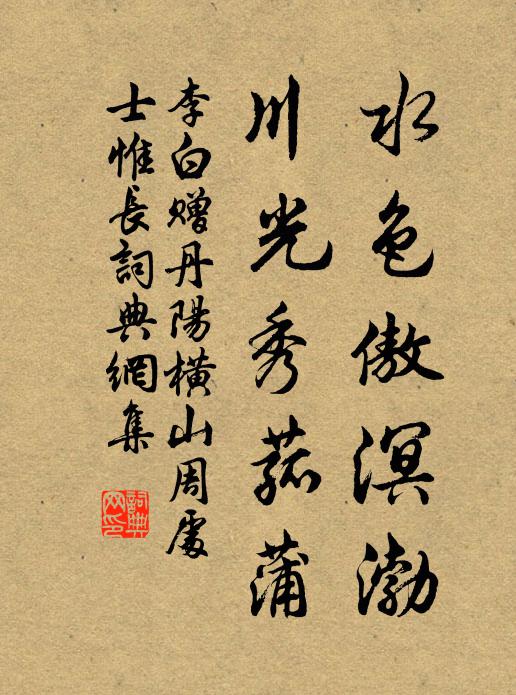 水色傲溟渤
川光秀菰蒲
李白赠丹陽横山周處
士惟長詞典網集
詞典
网印